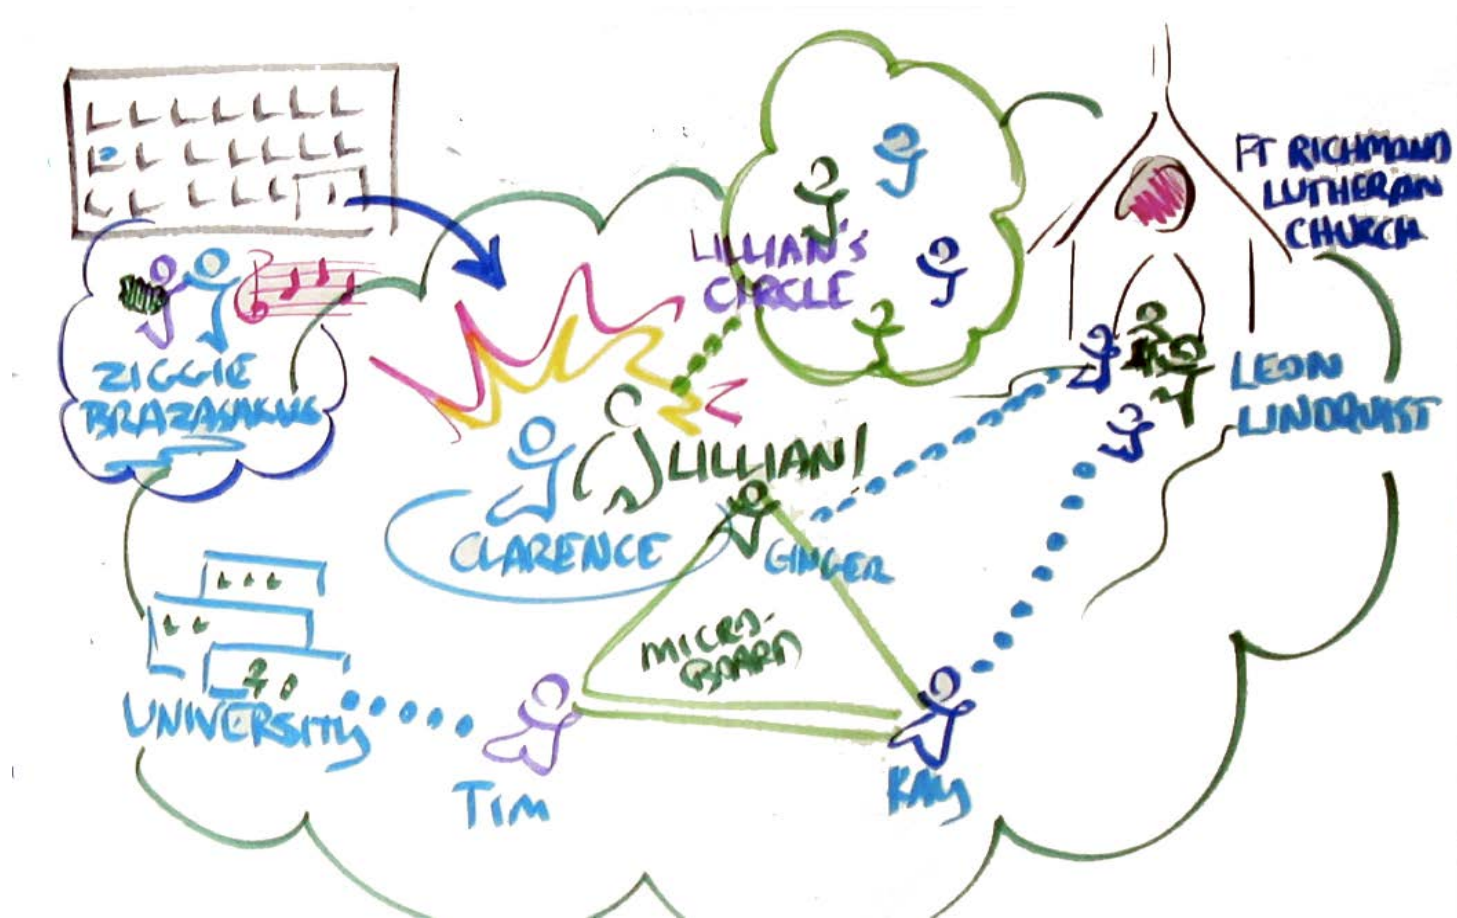 FT RICHMOND
LUTHERAN
CHURCH
LILLIAN'S
CIRCLE
ZIGGIE
LEON
LINDQUIST
LILLIAN!
CLARENCE
GINGER
MICRO-
BOARD
UNIVERSITY
TIM
KAY